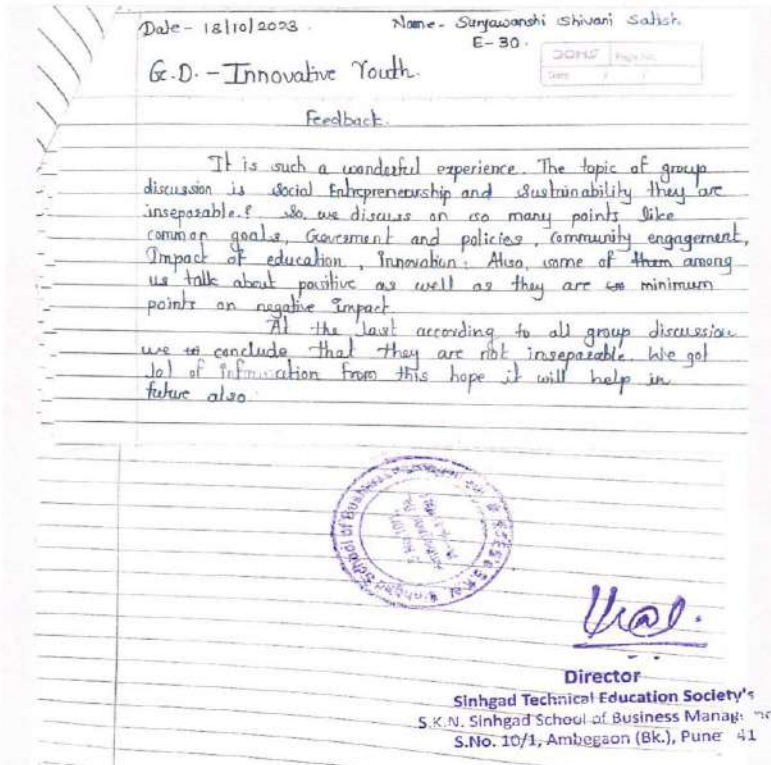 Date - 18/10/2023.
Name - Suryawanshi Shivani Satish.
E-30.
Page No.
Date / /
G.D. - Innovative Youth.
Feedback.
It is such a wonderful experience. The topic of group
discussion is Social Entrepreneurship and Sustainability they are
inseparable.? So, we discuss on so many points like
common goals, Goverment and policies, Community engagement,
Impact of education, Innovation. Also, some of them among
us talk about positive as well as they are minimum
points on negative Impact.
At the last according to all group discussion
we to conclude that they are not inseparable. We got
lot of information from this hope it will help in
future also
Sinhgad School of Business
Director
Sinhgad Technical Education Society's
S.K.N. Sinhgad School of Business
S.No. 10/1, Ambegaon (Bk.), Pune 41